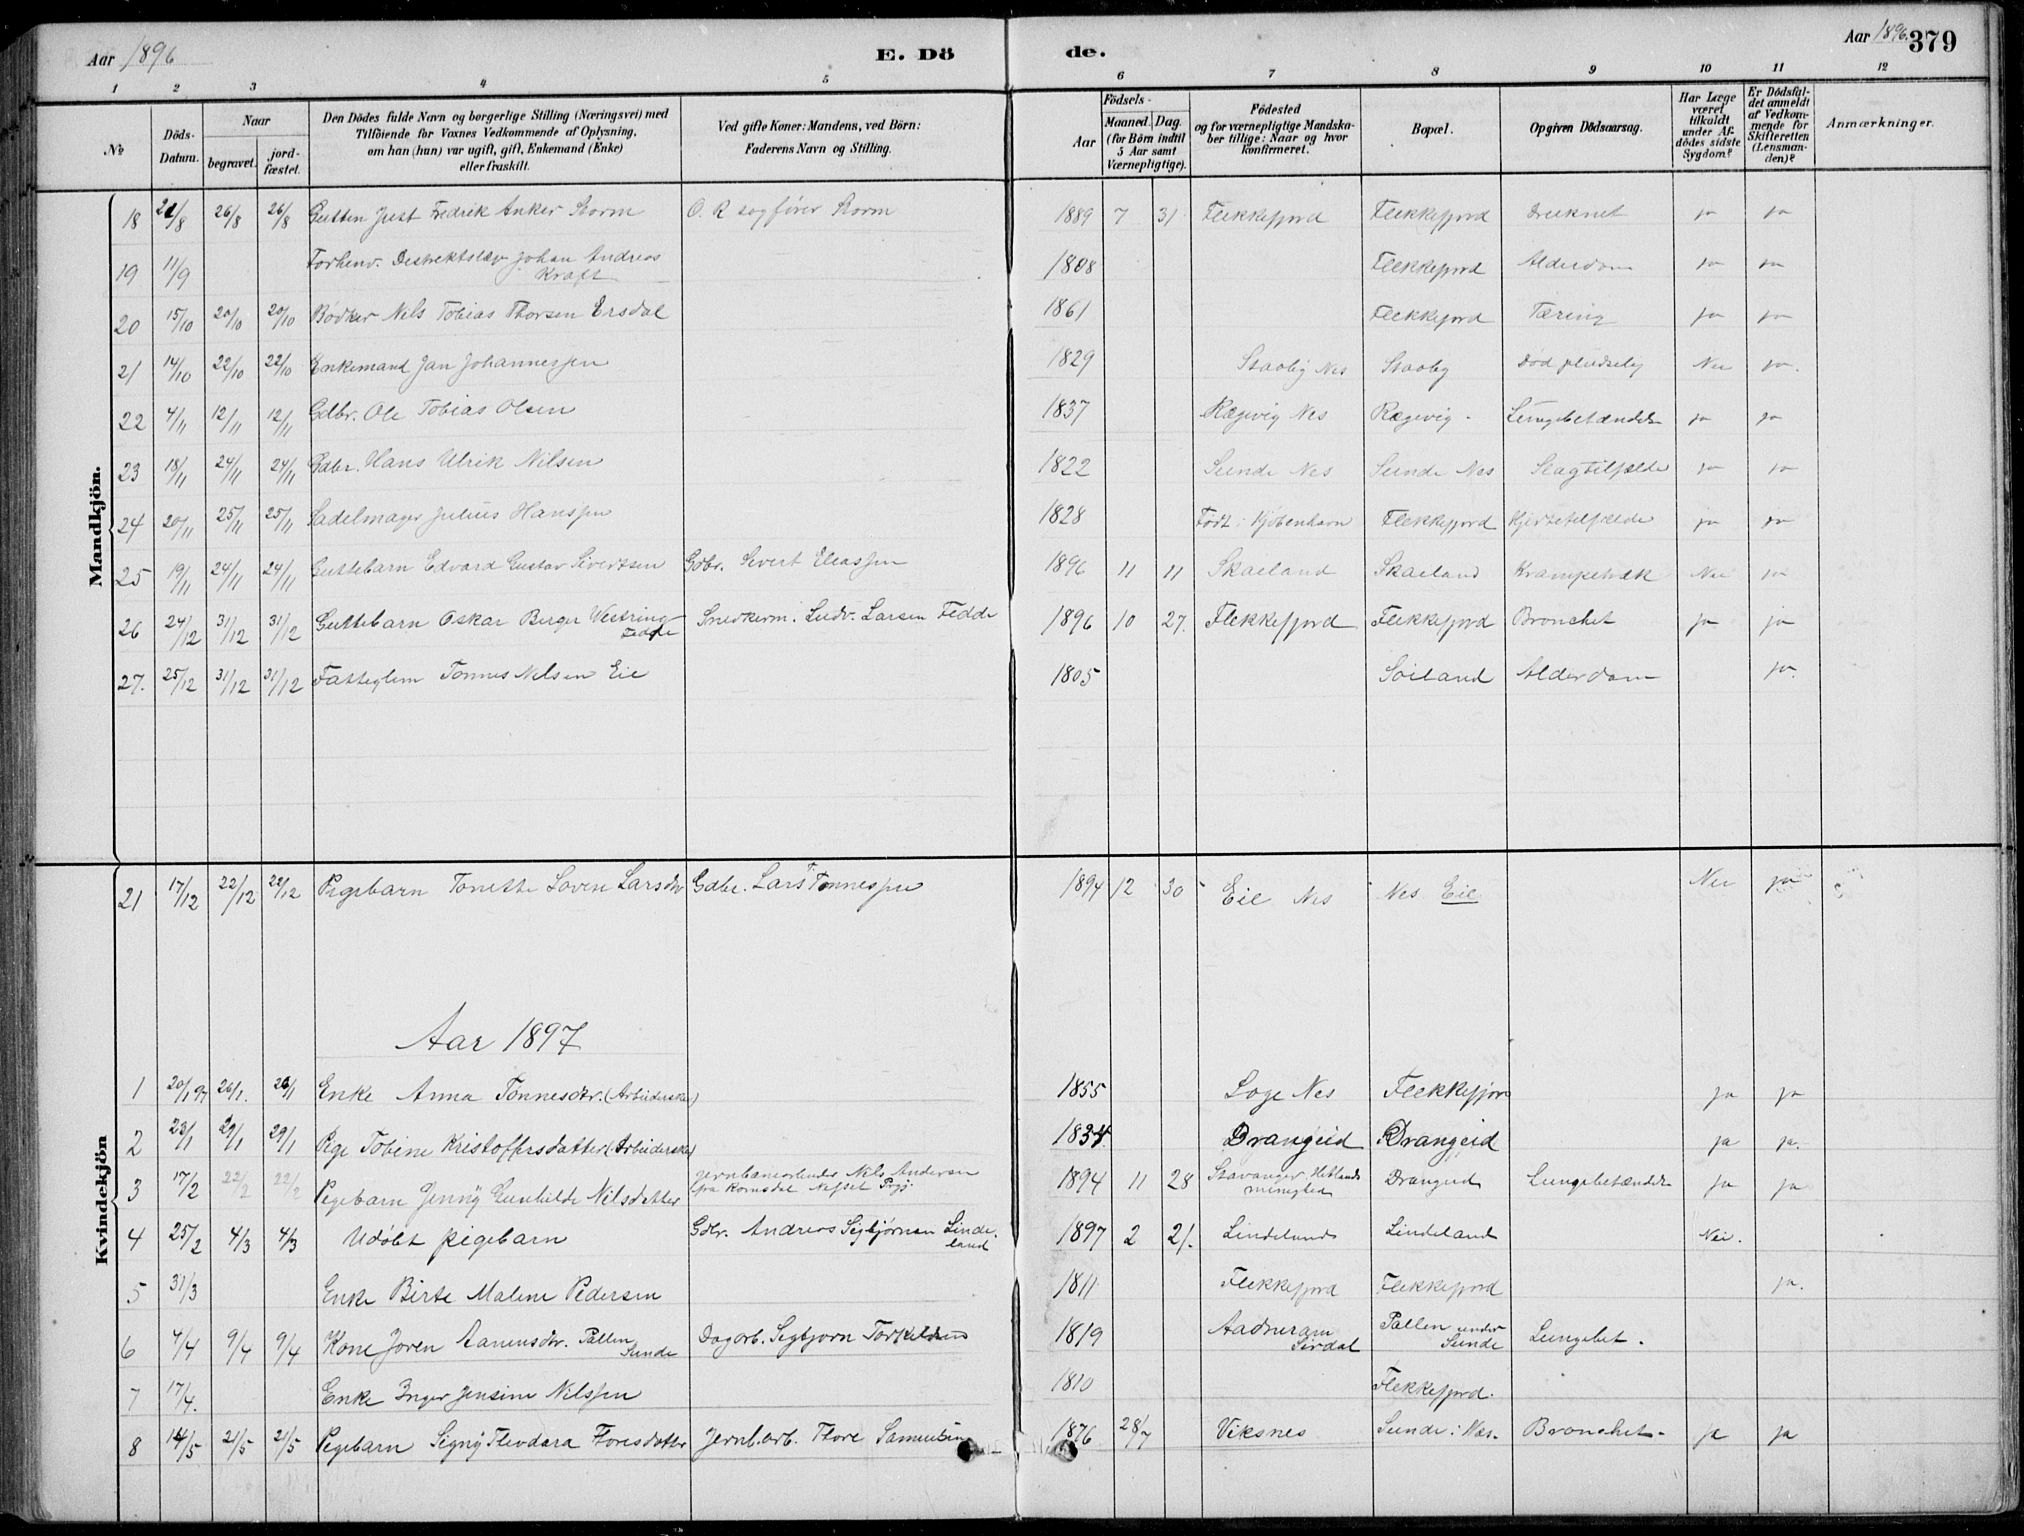 Aar 1896 E. Döde. Aar 1896. 379
1 2 3 4 5 6 7 8 9 10 11 12
No
Döds-Datum.
Naar
begravet.
jord-fæstet.
Den Dödes fulde Navn og borgerlige Stilling (Næringsvei) med
Tilföiende for Voxnes Vedkommende af Oplysning,
om han (hun) var ugift, gift, Enkemand (Enke)
eller fraskilt.
Ved gifte Koner: Mandens, ved Börn:
Faderens Navn og Stilling.
Födsels-
Aar
Maaned. Dag.
(for Börn indtil
5 Aar samt
Værnepligtige).
Födested
og for værnepligtige Mandska-
ber tillige: Naar og hvor
konfirmeret.
Bopæl.
Opgiven Dödsaarsag.
Har Læge
været
tilkaldt
under Af-
dödes sidste
Sygdom?
Er Dödsfal-
det anmeldt
af Vedkom-
mende for
Skifteretten
(Lensman-
den)?
Anmærkninger.
Mandkjön.
18 21/8 26/8 26/8 Gutten Just Fredrik Anker Storm O. R sagfører Storm 1889 7 31 Flekkefjord Flekkefjord Druknet ja ja
19 11/9 Forhenv. Destriktslæge Johan Andreas Kraft 1808 Flekkefjord Alderdom ja ja
20 15/10 20/10 20/10 Bødker Nils Tobias Thorsen Ersdal 1861 Flekkefjord Tæring ja ja
21 14/10 22/10 22/10 Enkemand Jan Johannessen 1829 Staaby Nes Staaby Død pludselig Nei ja.
22 4/11 12/11 12/11 Gdbr. Ole Tobias Olsen 1837 Rægevig Nes Rægevig. Lungebetændelse ja ja
23 18/11 24/11 24/11 Gdbr. Hans Ulrik Nilsen 1822 Sunde Nes Sunde Nes Slagtilfælde ja ja
24 20/11 25/11 25/11 Sadelmager Julius Hanssen 1828 Født i Kjøbenhavn Flekkefjord Hjertetilfælde ja ja
25 19/11 24/11 24/11 Guttebarn Edvard Gustav Sivertsen Gdbr. Sivert Eliassen 1896 11 11 Skaeland Skaeland Krampetræk Nei ja
26 24/12 31/12 31/12 Guttebarn Oskar Berger Westring Fedde Snedkerm. Ludv. Larsen Fedde 1896 10 27. Flekkefjord Flekkefjord Bronchet ja ja
27. 25/12 31/12 31/12 Fattiglem Tønnes Nilsen Eie 1805 Soiland Alderdom ja.
21 17/12 22/12 22/12 Pigebarn Tonette Loven Larsdtr Gdbr. Lars Tønnessen 1894 12 30 Eie Nes Nes Eie Nei ja
Aar 1897
Kvindekjön
1 20/1 97 26/1. 26/1 Enke Anna Tønnesdtr. (Arbeiderske) 1855 Loge Nes Flekkefjord ja ja
2 23/1 29/1 29/1 Pige Tobine Kristoffersdatter (Arbeiderske) 1834 Drangeid Drangeid ja ja.
3 17/2 22/2 22/2 Pigebarn Jenny Gunhilde Nilsdatter Jernbanearbeider Nils Andersen fra Romsdal 1894 11 28 Stavanger Hetlands menighed Drangeid Lungebetændelse ja ja
4 25/2 4/3 4/3 Udøbt pigebarn Gdbr. Andreas Sigbjørnsen Lindeland 1897 2 21. Lindeland Lindeland Nei.
5 31/3 Enke Birte Maline Pedersen 1811 Flekkefjord Flekkefjord ja.
6 4/4 9/4 9/4 Kone Joren Aanensdtr. Pallen Sunde Dagarb. Sigbjørn Torkildsen 1819 Aadneram Sirdal Pallen under Sunde Lungebet.
7 17/4. Enke Inger Jensine Nilssen 1810 Flekkefjord.
8 14/5 21/5 21/5 Pigebarn Signy Theodara Thoresdatter Jernb.arb. Thore Samuelsen 1876 28/7 Viksnes Sunde i Nes. Bronchet. ja ja